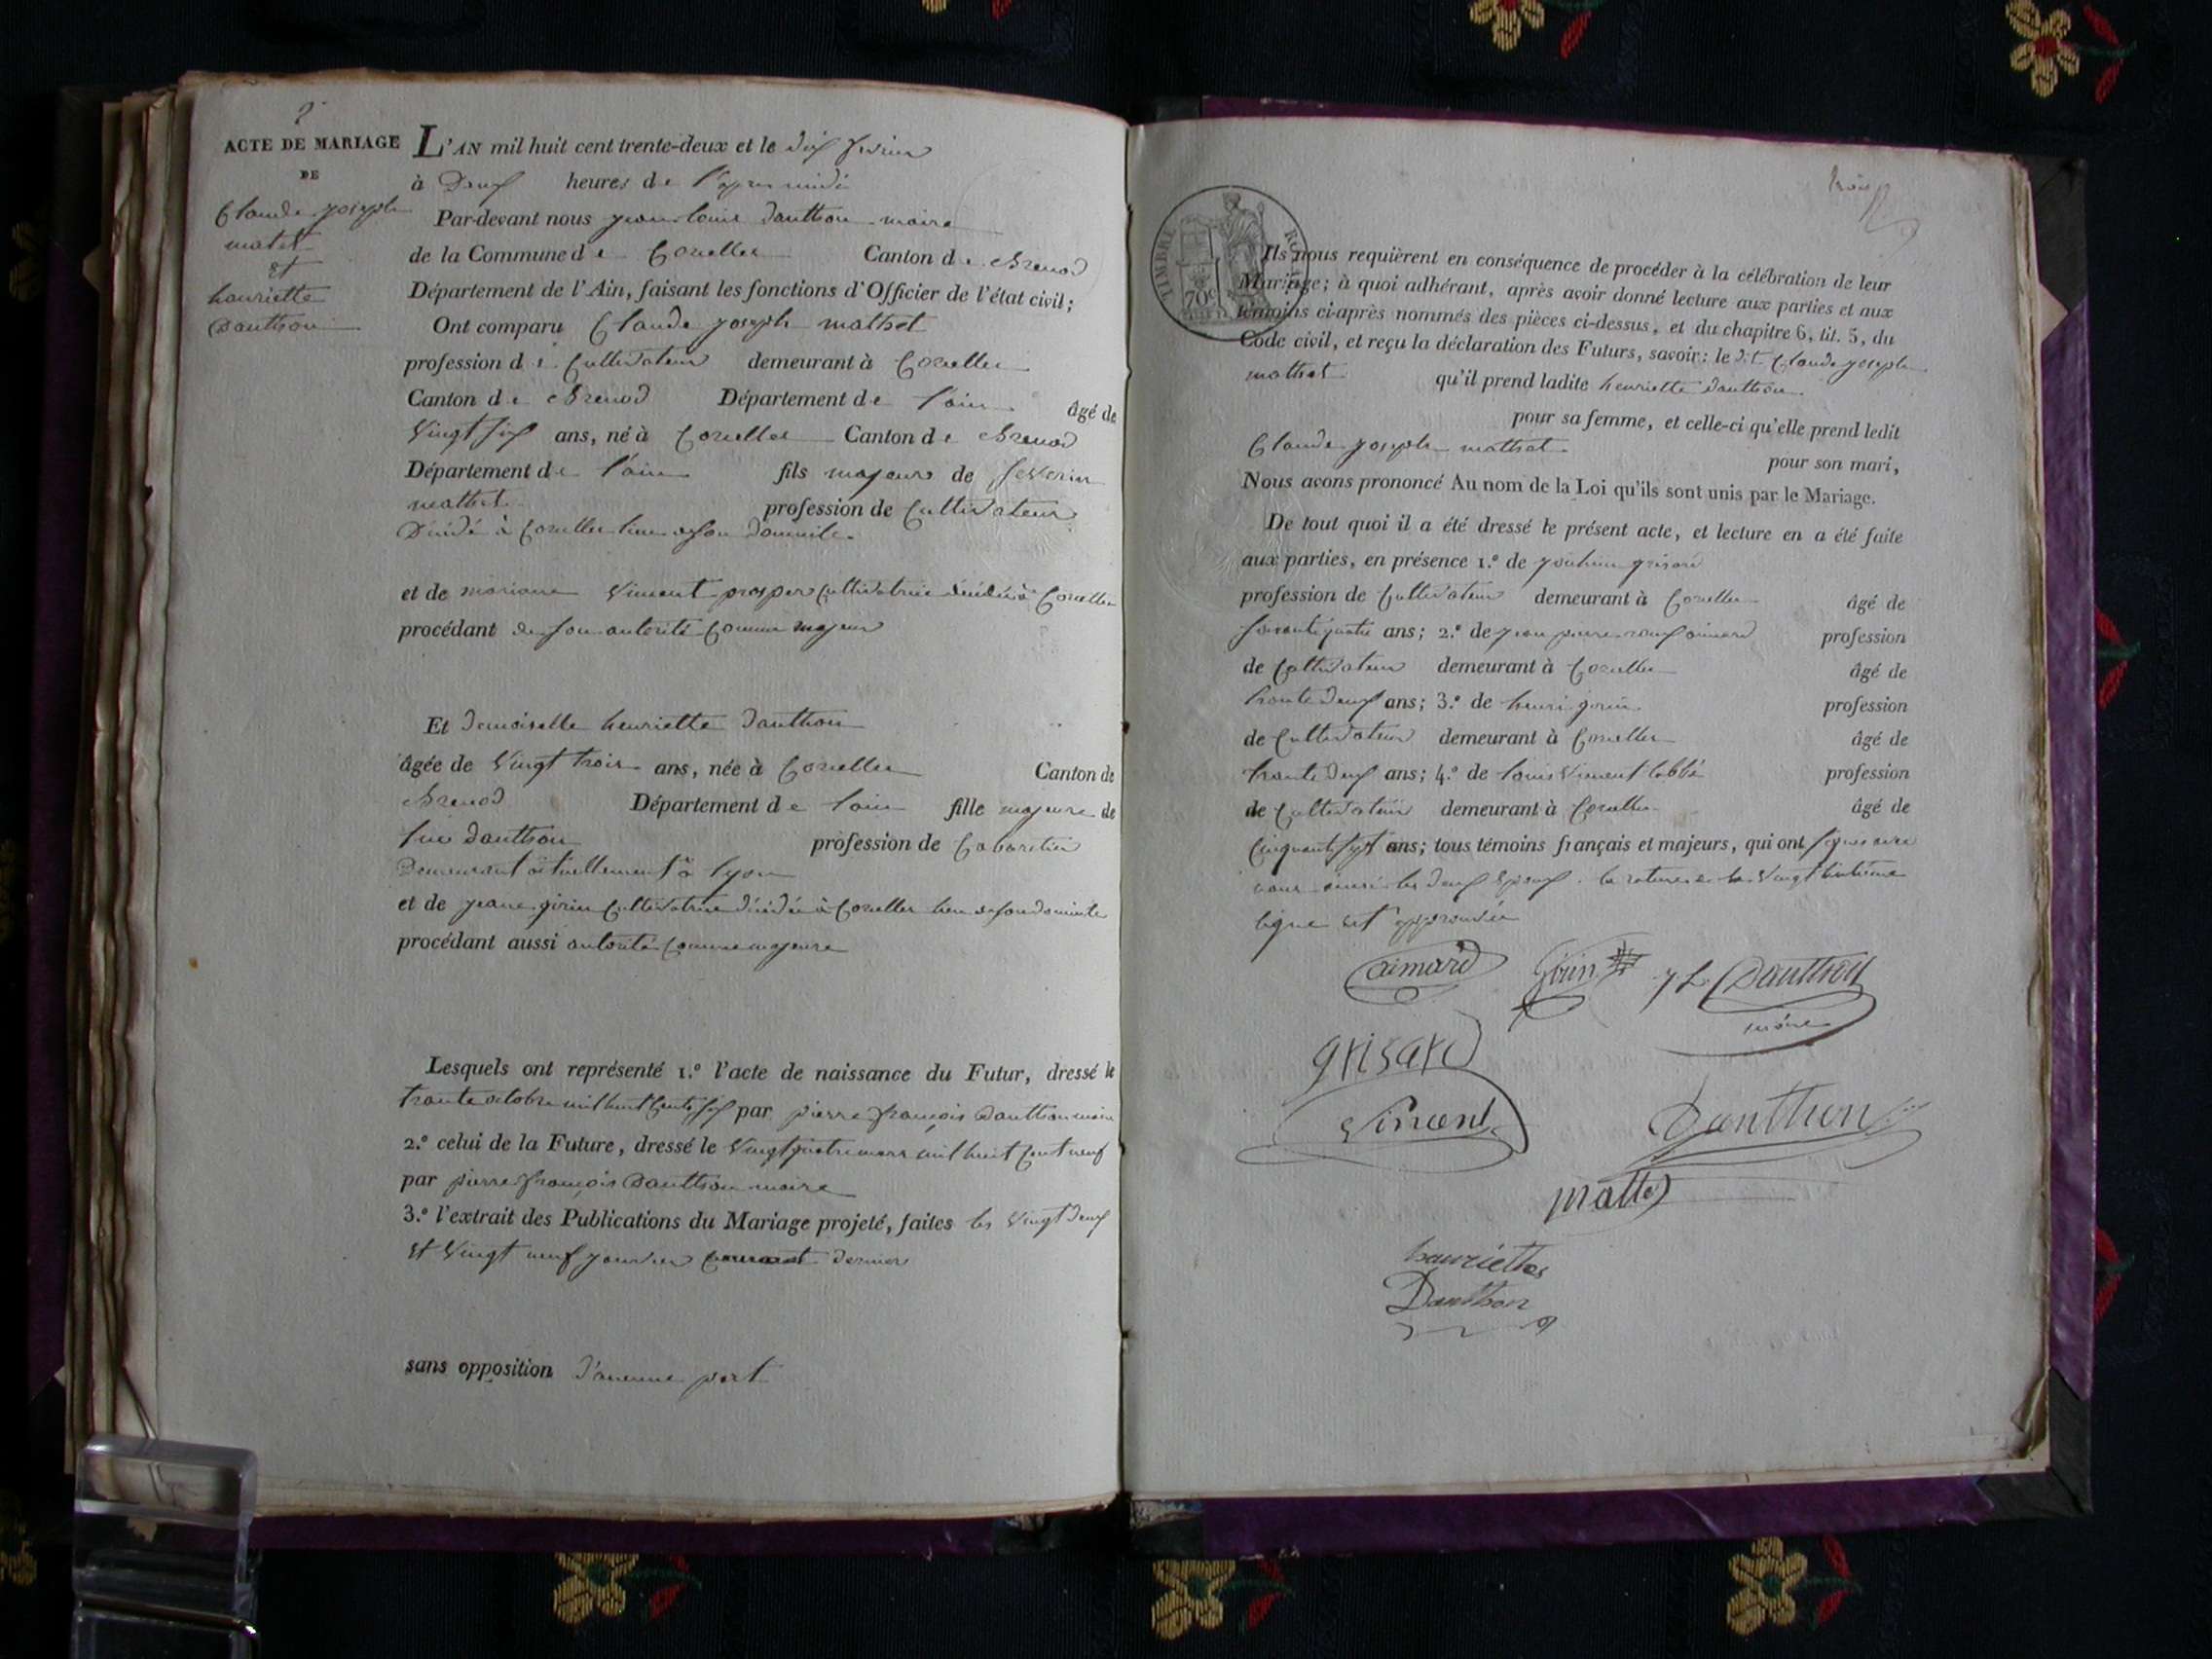 2
ACTE DE MARIAGE
DE
Claude joseph
matet
et
henriette
Danthon
L'AN mil huit cent trente-deux et le dix fevrier
à Deux heures de l'apres midi
Par-devant nous jean louis Danthon maire
de la Commune de Corcelles Canton de Brenod
Département de l'Ain, faisant les fonctions d'Officier de l'état civil;
Ont comparu Claude joseph mathet
profession de Cultivateur demeurant à Corcelles
Canton de Brenod Département de l'ain âgé de
Vingt six ans, né à Corcelles Canton de Brenod
Département de l'ain fils majeur de Severin
mathet profession de Cultivateur
Décédé à Corcelles lieu de son domicile
et de mariane Vincent prosper Cultivatrice décédée à Corcelles
procédant de son autorité Comme majeur
Et demoiselle henriette Danthon
âgée de Vingt trois ans, née à Corcelles Canton de
Brenod Département de l'ain fille majeure de
luc Danthon profession de Cabaretier
Demeurant actuellement à lyon
et de jeane girin Cultivatrice décédée à Corcelles lieu de son domicile
procédant aussi autorité Comme majeure
Lesquels ont représenté 1.º l'acte de naissance du Futur, dressé le
trante octobre mil huit Cents six par pierre françois Danthon maire
2.º celui de la Future, dressé le Vingt quatre mars mil huit Cent neuf
par pierre françois Danthon maire
3.º l'extrait des Publications du Mariage projeté, faites les Vingt deux
et Vingt neuf janvier Courant dernier
sans opposition d'aucune part
trois
TIMBRE ROYAL
70c
Ils nous requièrent en conséquence de procéder à la célébration de leur
Mariage; à quoi adhérant, après avoir donné lecture aux parties et aux
témoins ci-après nommés des pièces ci-dessus, et du chapitre 6, tit. 5, du
Code civil, et reçu la déclaration des Futurs, savoir: le dit Claude joseph
mathet qu'il prend ladite henriette Danthon
pour sa femme, et celle-ci qu'elle prend ledit
Claude joseph mathet pour son mari,
Nous avons prononcé Au nom de la Loi qu'ils sont unis par le Mariage.
De tout quoi il a été dressé le présent acte, et lecture en a été faite
aux parties, en présence 1.º de grisard
profession de Cultivateur demeurant à Corcelles âgé de
soixante quatre ans; 2.º de jean pierre aimard profession
de Cultivateur demeurant à Corcelles âgé de
trante deux ans; 3.º de henri girin profession
de Cultivateur demeurant à Corcelles âgé de
trante deux ans; 4.º de louis Vincent labbé profession
de Cultivateur demeurant à Corcelles âgé de
Cinquante sept ans; tous témoins français et majeurs, qui ont signés avec
nous ainsi les deux Epoux. la rature a la Vingt huitieme
ligne est approuvée
aimard Girin J L Danthon
maire
grisard
Vincent Danthon
mattet
henriette
Danthon